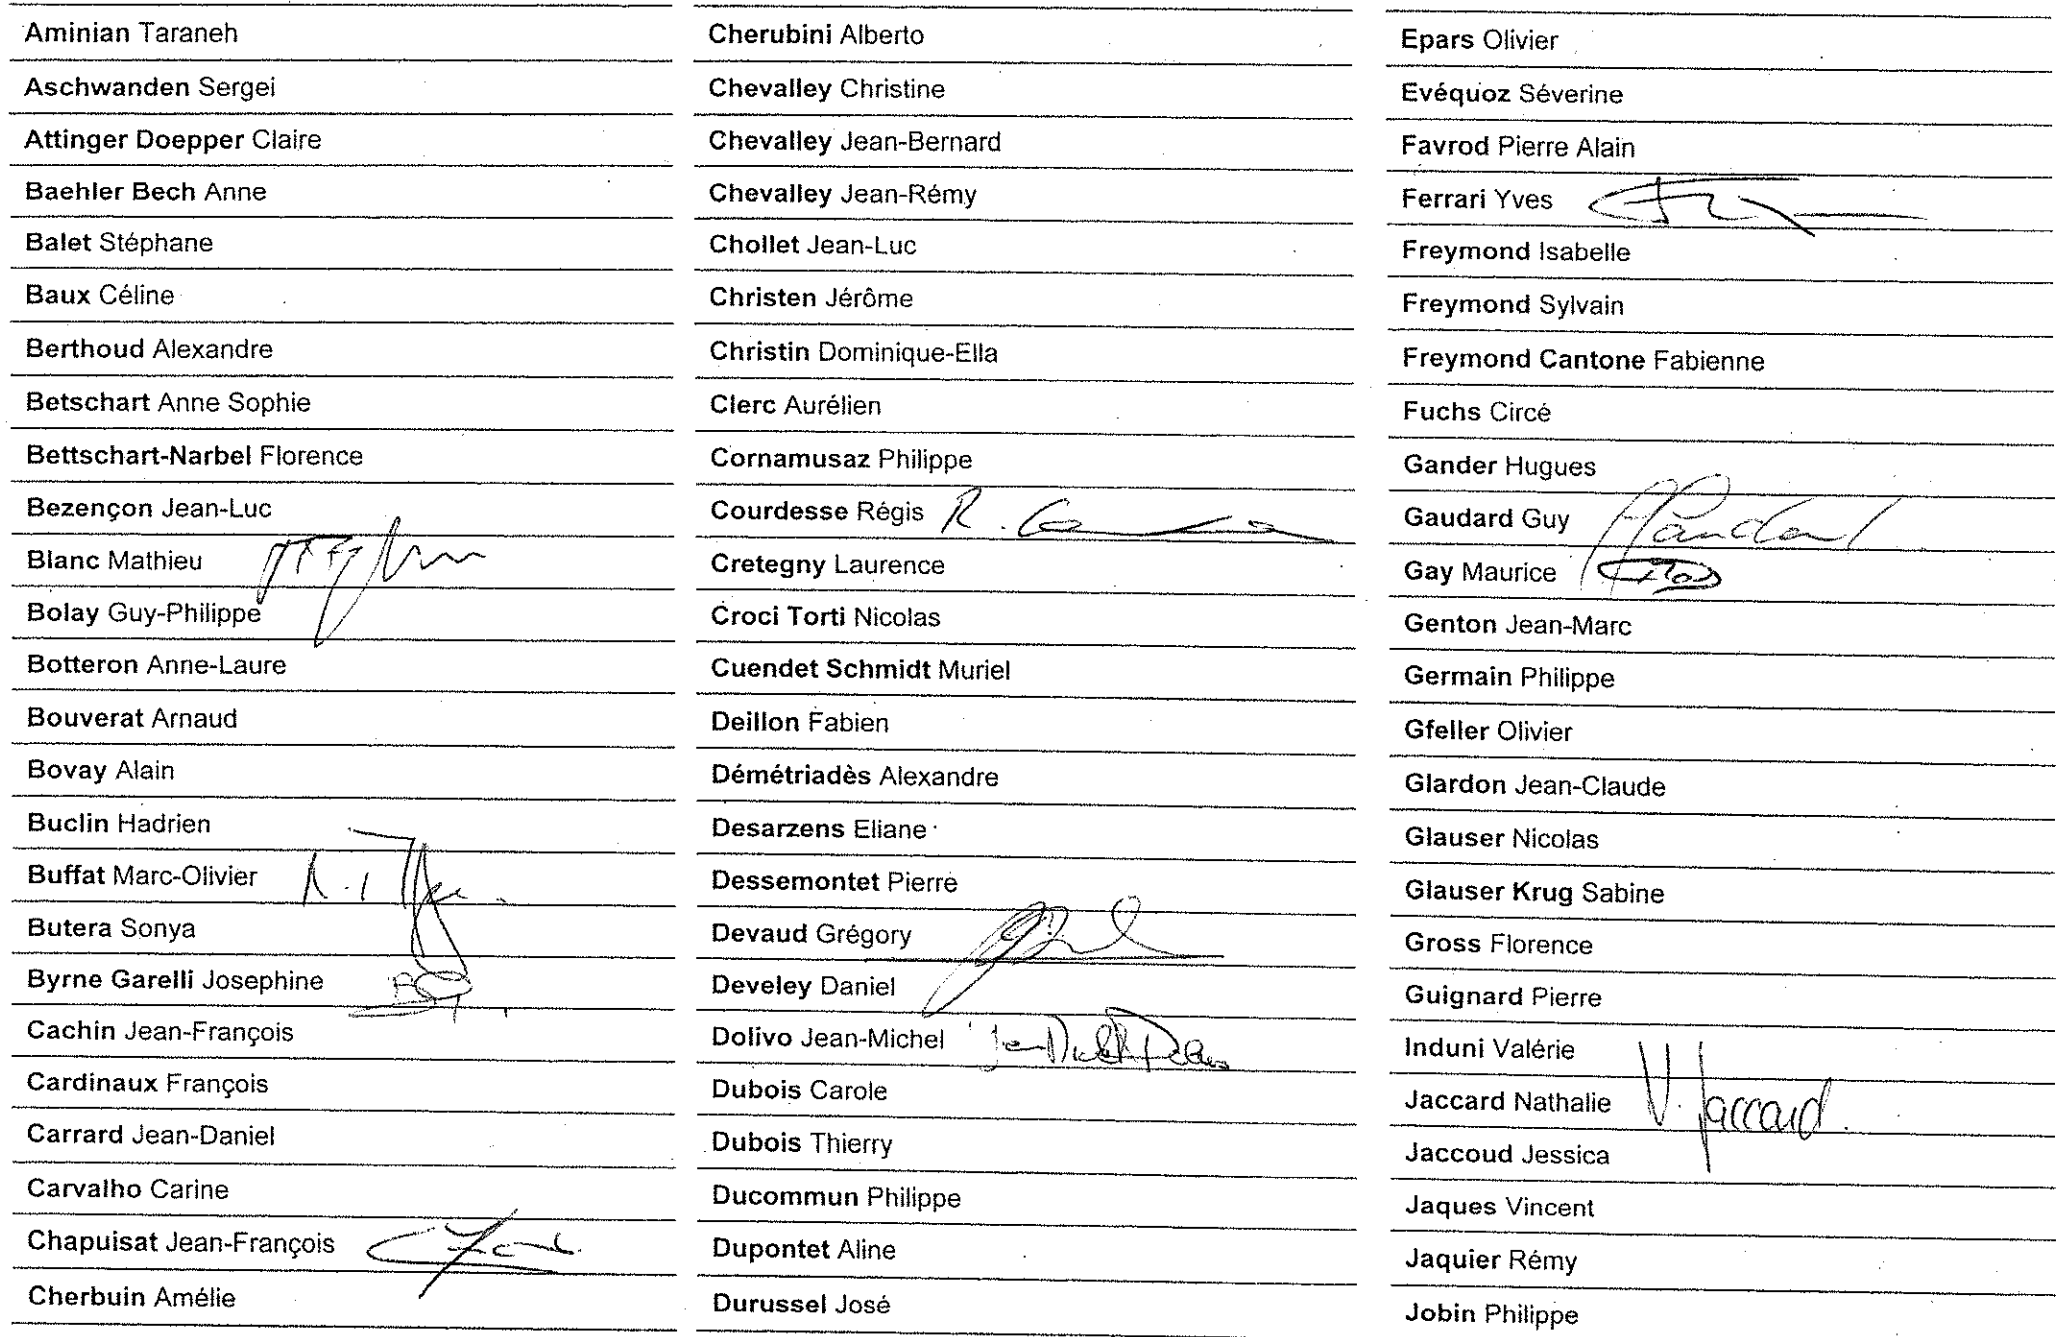 Aminian Taraneh
Aschwanden Sergei
Attinger Doepper Claire
Baehler Bech Anne
Balet Stéphane
Baux Céline
Berthoud Alexandre
Betschart Anne Sophie
Bettschart-Narbel Florence
Bezençon Jean-Luc
Blanc Mathieu
Bolay Guy-Philippe
Botteron Anne-Laure
Bouverat Arnaud
Bovay Alain
Buclin Hadrien
Buffat Marc-Olivier
Butera Sonya
Byrne Garelli Josephine
Cachin Jean-François
Cardinaux François
Carrard Jean-Daniel
Carvalho Carine
Chapuisat Jean-François
Cherbuin Amélie
Cherubini Alberto
Chevalley Christine
Chevalley Jean-Bernard
Chevalley Jean-Rémy
Chollet Jean-Luc
Christen Jérôme
Christin Dominique-Ella
Clerc Aurélien
Cornamusaz Philippe
Courdesse Régis R.
Cretegny Laurence
Croci Torti Nicolas
Cuendet Schmidt Muriel
Deillon Fabien
Démétriadès Alexandre
Desarzens Eliane
Dessemontet Pierre
Devaud Grégory
Develey Daniel
Dolivo Jean-Michel
Dubois Carole
Dubois Thierry
Ducommun Philippe
Dupontet Aline
Durussel José
Epars Olivier
Evéquoz Séverine
Favrod Pierre Alain
Ferrari Yves
Freymond Isabelle
Freymond Sylvain
Freymond Cantone Fabienne
Fuchs Circé
Gander Hugues
Gaudard Guy
Gay Maurice
Genton Jean-Marc
Germain Philippe
Gfeller Olivier
Glardon Jean-Claude
Glauser Nicolas
Glauser Krug Sabine
Gross Florence
Guignard Pierre
Induni Valérie
Jaccard Nathalie N. Jaccard.
Jaccoud Jessica
Jaques Vincent
Jaquier Rémy
Jobin Philippe